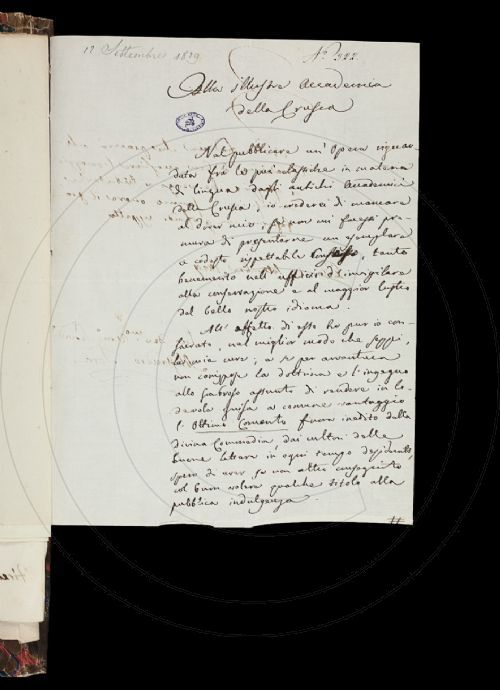 12 Settembre 1829
N.° 322
Alla illustre Accademia
della Crusca
Nel pubblicare un' Opera riguar
data fra le più classiche in materia
di lingua dagli antichi Accademici
della Crusca, io crederei di mancare
al dover mio, se non mi facessi pre
mura di presentarne un esemplare
a codesto rispettabile Consesso, tanto
benemerito nell' ufficio di invigilare
alla conservazione e al maggior lustro
del bello nostro idioma.
All' effetto di esso ho pur io con
sacrato, nel miglior modo che seppi,
le mie cure; e se per avventura
non corrispose la dottrina e l'ingegno
allo scabroso assunto di rendere in lo
devole guisa a comune vantaggio
l'Ottimo Comento finora inedito della
divina Commedia, dai cultori delle
buone lettere in ogni tempo desiderato,
spero di aver, se non altro conseguito
col buon volere qualche titolo alla
pubblica indulgenza.